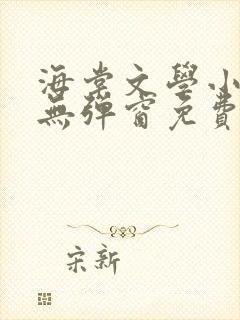 海棠文學小
無彈窗免費
宋新